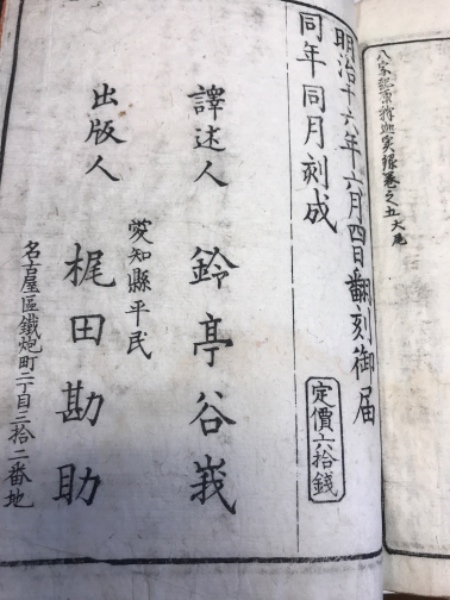 八宗起原釋迦実録巻之五大尾
明治十六年六月四日翻刻御届
同年同月刻成
定價六拾錢
譯述人 鈴亭谷峩
愛知縣平民
出版人 梶田勘助
名古屋區鐵炮町二丁目三拾二番地